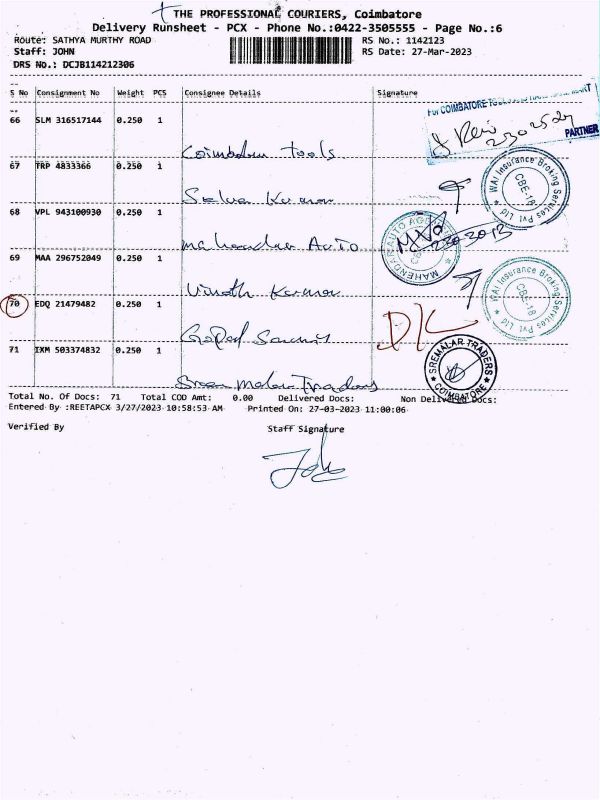 THE PROFESSIONAL COURIERS, Coimbatore
Delivery Runsheet - PCX - Phone No.:0422-3505555 - Page No.:6
Route: SATHYA MURTHY ROAD RS No.: 1142123
Staff: JOHN RS Date: 27-Mar-2023
DRS No.: DCJB114212306
S No Consignment No Weight PCS Consignee Details Signature
66 SLM 316517144 0.250 1
For COIMBATORE
PARTNER
Coimbatore Tools
67 TRP 4833366 0.250 1
WAI Insurance Broking Services Pvt Ltd
CBE-18
Selva Kumar
68 VPL 943100930 0.250 1
MAHENDAR AUTO
Mahendar Auto
69 MAA 296752049 0.250 1
WAI Insurance Broking Services Pvt Ltd
CBE-18
Vinoth Kumar
70 EDQ 21479482 0.250 1
D/L
Gopal
71 IXM 503374832 0.250 1
SREMALAR TRADERS
COIMBATORE
Sree Malar Traders
Total No. Of Docs: 71 Total COD Amt: 0.00 Delivered Docs: Non Delivered Docs:
Entered By :REETAPCX 3/27/2023 10:58:53 AM Printed On: 27-03-2023 11:00:06
Verified By Staff Signature
John